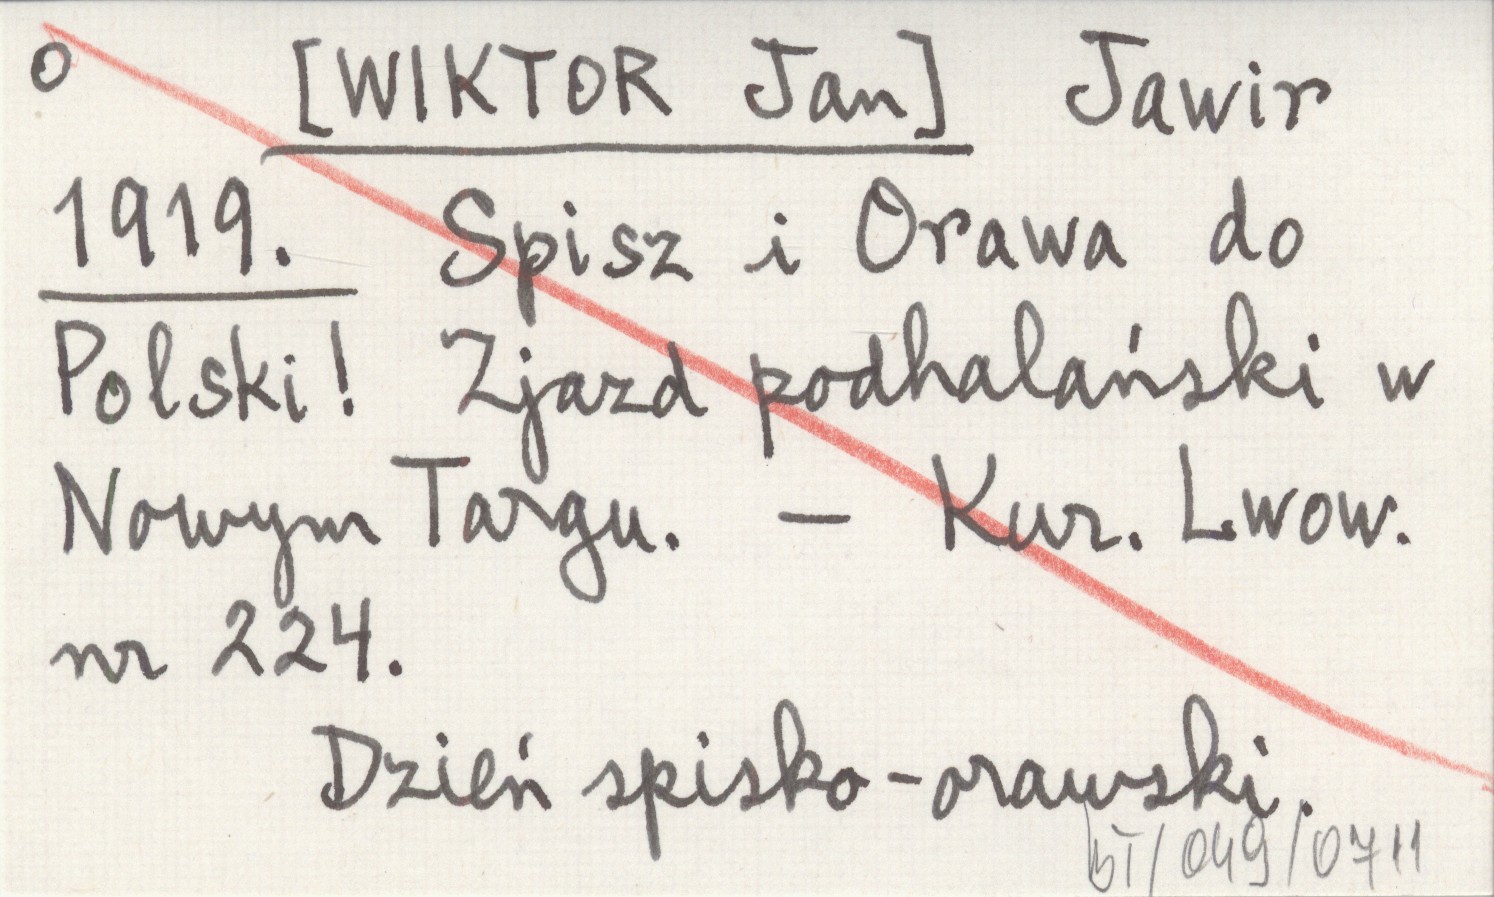 o [WIKTOR Jan] Jawir
1919. Spisz i Orawa do
Polski! Zjazd podhalański w
Nowym Targu. – Kur. Lwow.
nr 224.
Dzień spisko-orawski.
BT/049/0711